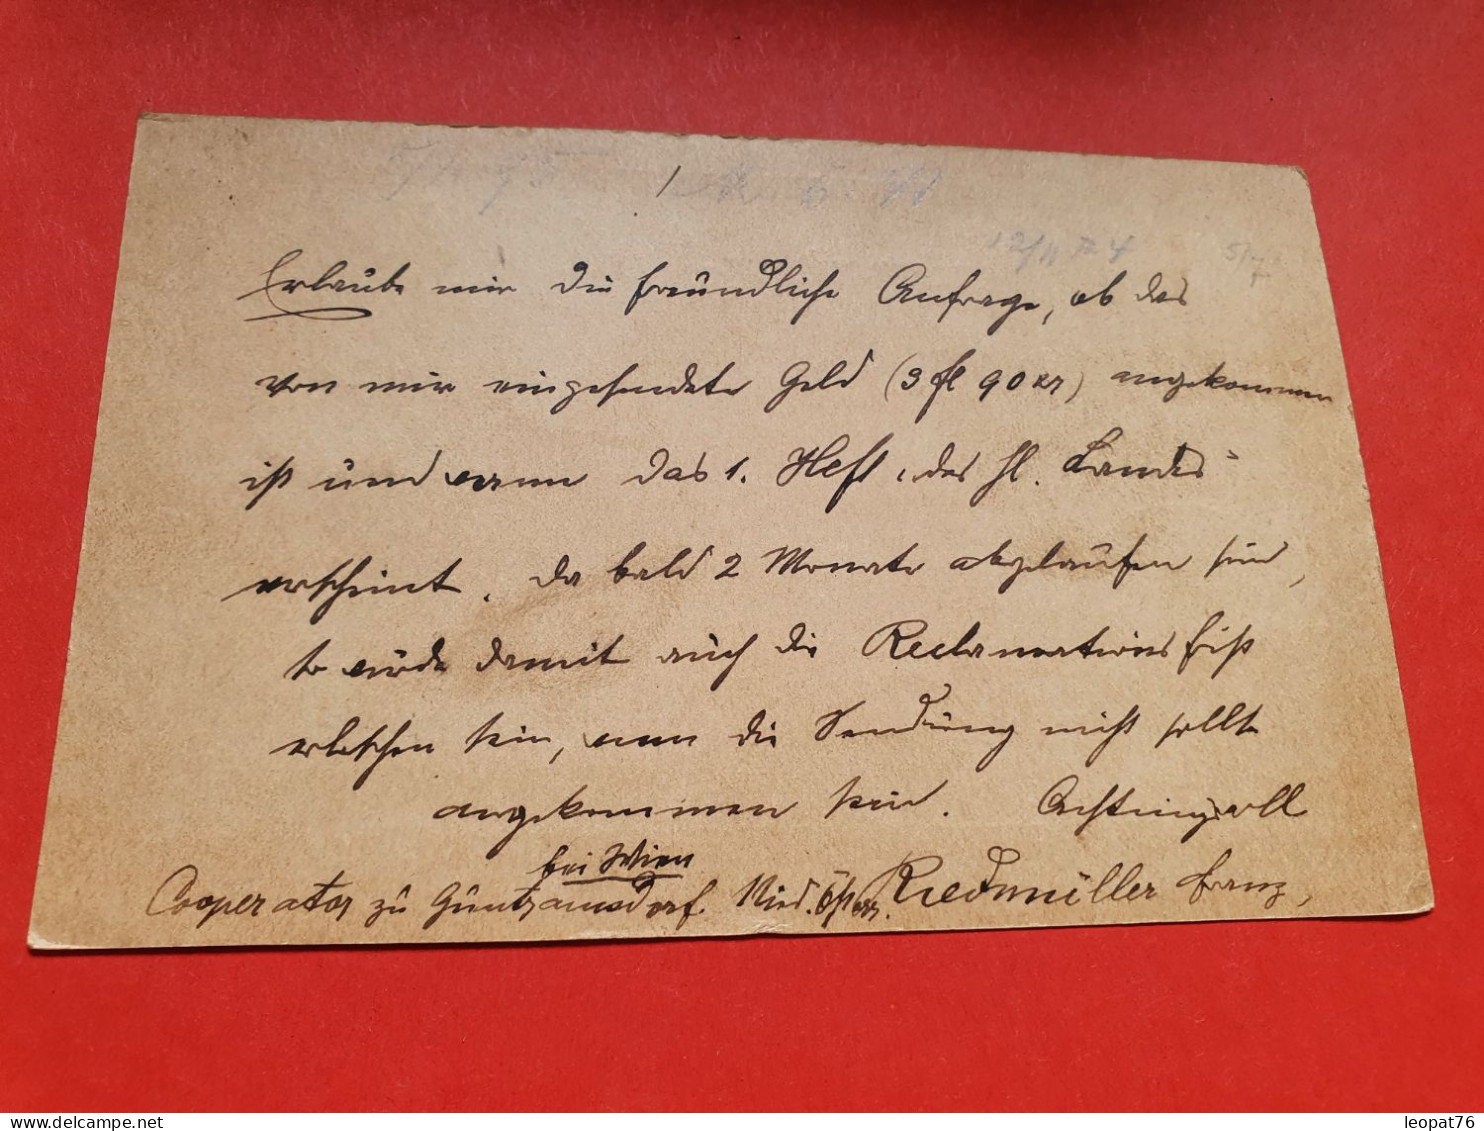 12/11 74 5/7
Erlaube mir die freundliche Anfrage, ob das
von mir eingesendete Geld (3 fl 90 kr) angekommen
ist und wann das 1. Heft des hl. Landes
erscheint. Da bald 2 Monate abgelaufen sind,
so würde damit auch die Reclamationsfrist
erloschen sein, wenn die Sendung nicht sollte
angekommen sein. Achtungsvoll
bei Wien
Cooperator zu Guntramsdorf. Nied. Östrr. Riedmüller Franz,
delcampe.net
leopat76